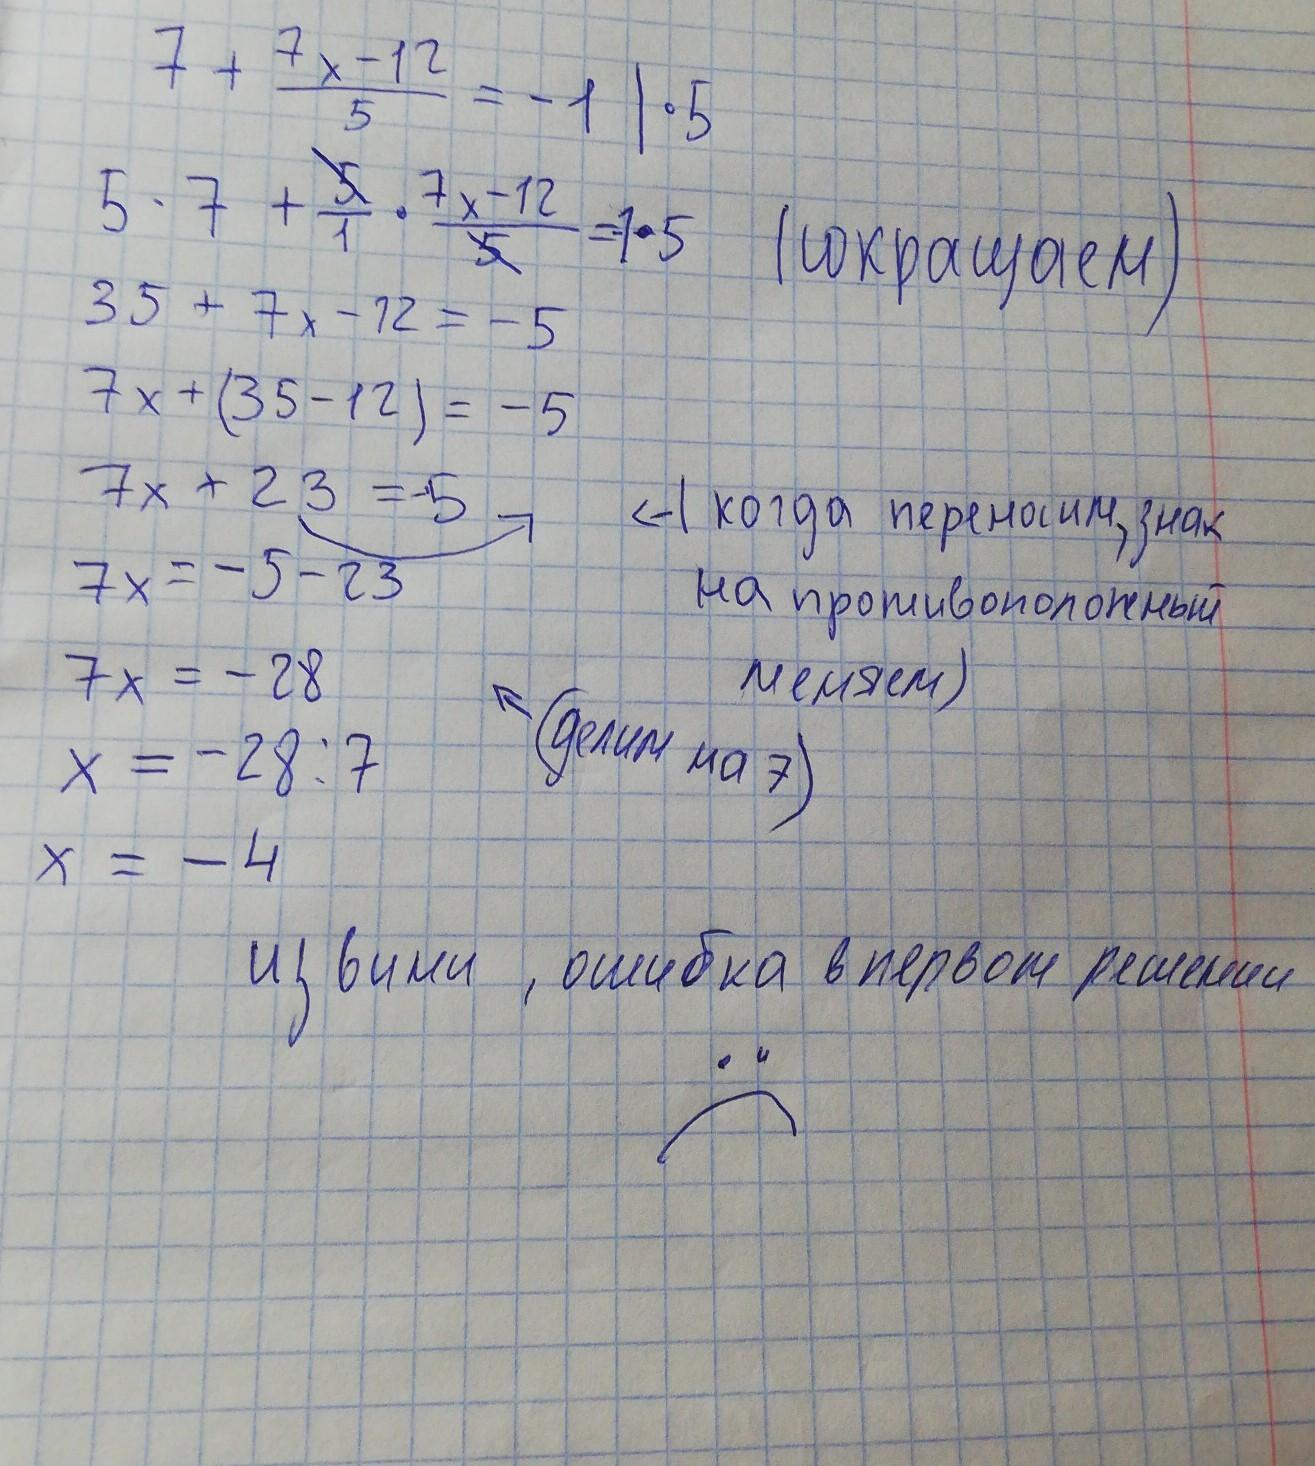 7 + (7x-12)/5 = -1 | · 5
5 · 7 + 5/1 · (7x-12)/5 = -1 · 5 (сокращаем)
35 + 7x - 12 = -5
7x + (35 - 12) = -5
7x + 23 = -5 ← (когда переносим, знак
на противоположный
меняем)
7x = -5 - 23
7x = -28
(делим на 7)
x = -28 : 7
x = -4
извини, ошибка в первом решении